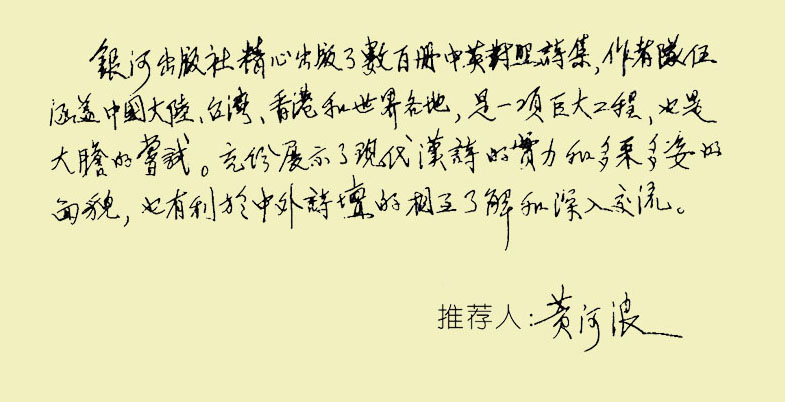 銀河出版社精心出版了數百册中英對照詩集,作者隊伍
涵盖中國大陸、台湾、香港和世界各地,是一项巨大工程,也是
大膽的嘗試。充份展示了现代漢詩的實力和多采多姿的
面貌,也有利於中外詩壇的相互了解和深入交流。
推荐人:黄河浪